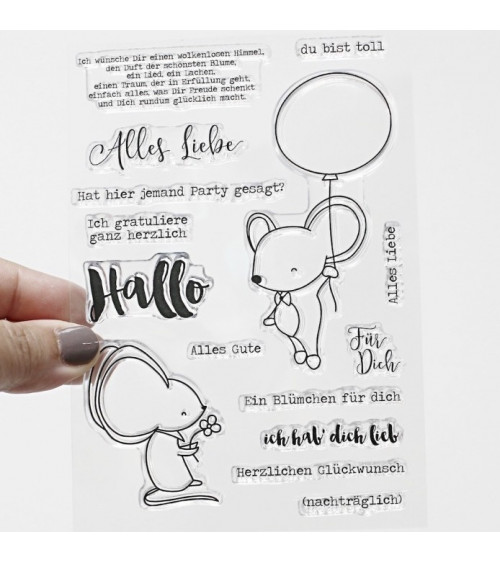 Ich wünsche Dir einen wolkenlosen Himmel,
den Duft der schönsten Blume,
ein Lied, ein Lachen,
einen Traum, der in Erfüllung geht,
einfach alles, was Dir Freude schenkt
und Dich rundum glücklich macht.
du bist toll
Alles Liebe
Hat hier jemand Party gesagt?
Ich gratuliere
ganz herzlich
Alles Liebe
Hallo
Alles Gute
Für
Dich
Ein Blümchen für dich
ich hab' dich lieb
Herzlichen Glückwunsch
(nachträglich)